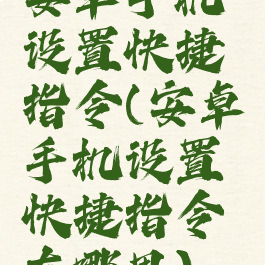 安卓手机
设置快捷
指令(安卓
手机设置
快捷指令
在哪里)